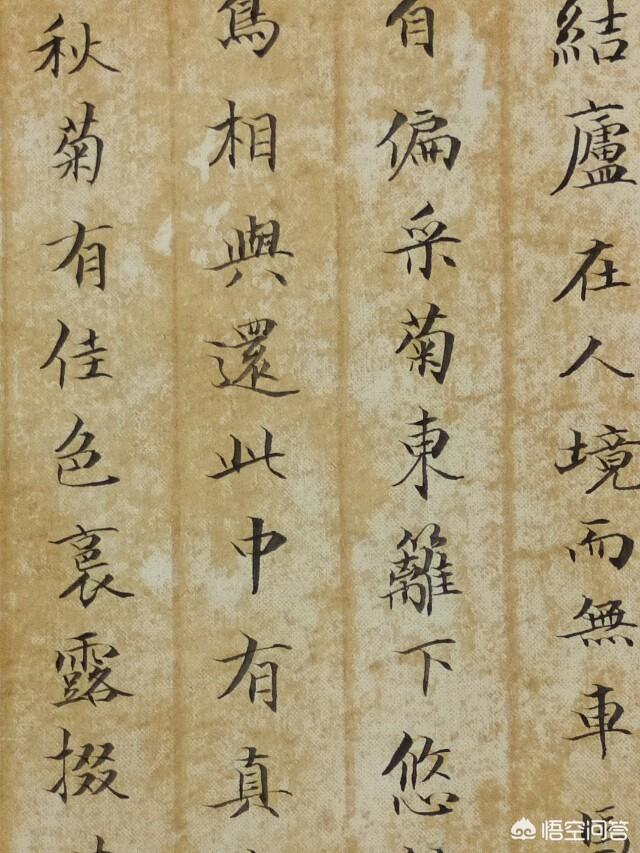 結廬在人境而無車
偏采菊東籬下悠
鳥相與還此中有真
秋菊有佳色裛露掇
悟空问答